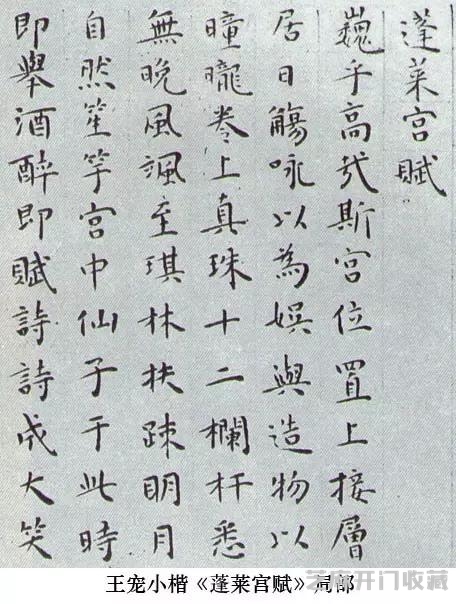 蓬莱宫賦
巍乎高哉斯宫位置上接層
居日觴咏以為娯與造物以
曈曨卷上真珠十二欄杆悉
無晚風颯至琪林扶疎明月
自然笙竽宫中仙子于此時
即舉酒醉即賦詩詩成大笑
王宠小楷《蓬莱宫赋》局部
芝麻开门收藏